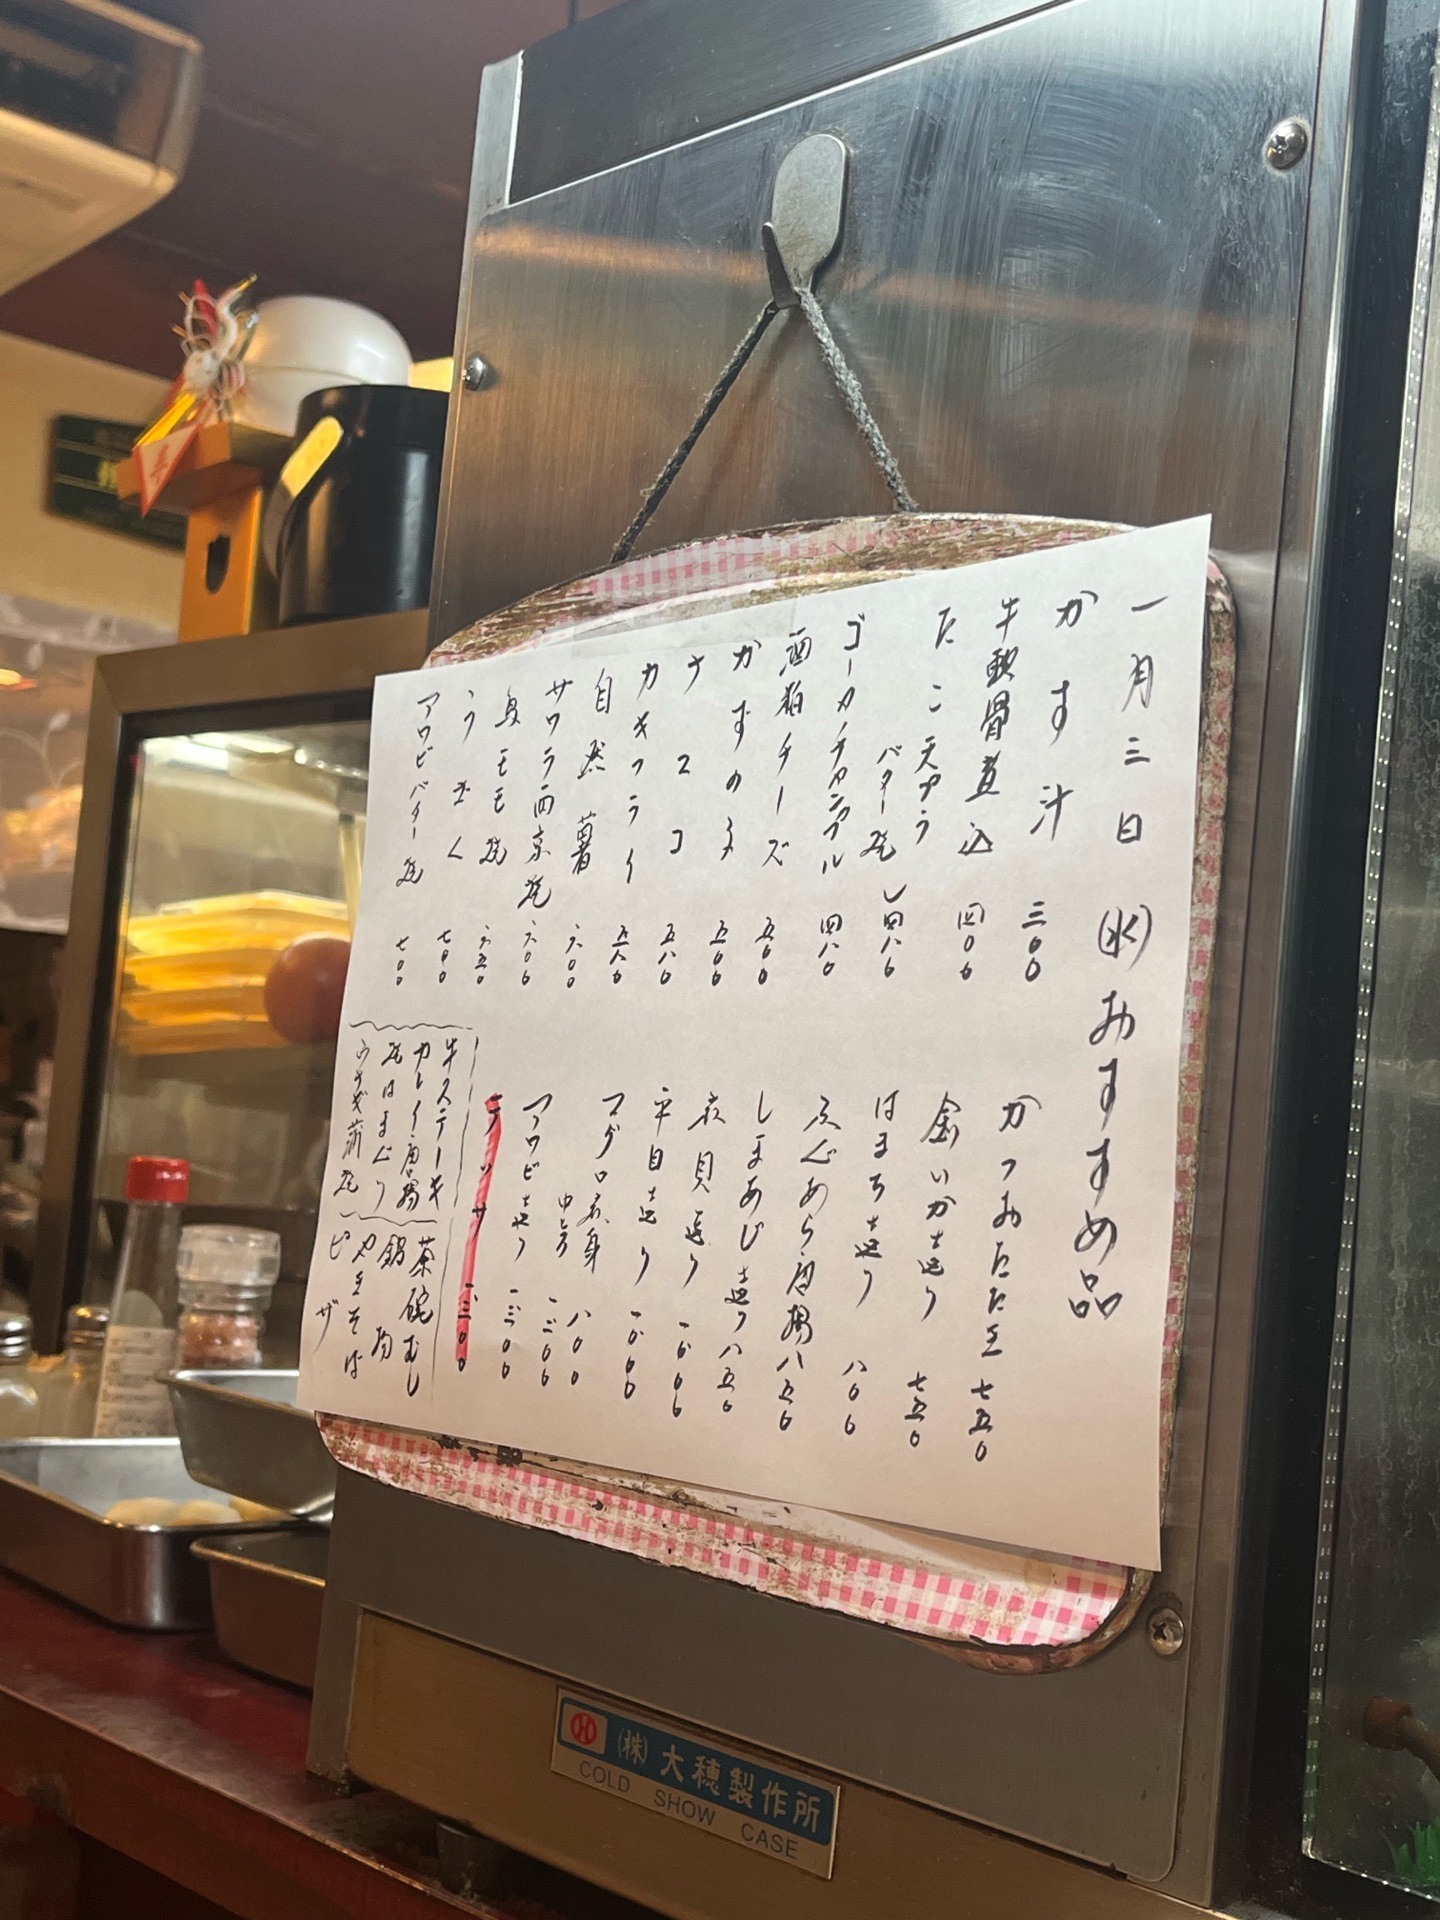 一月三日(水)おすすめ品
かす汁 三〇〇
牛軟骨煮込 四〇〇
たこ天プラ
バター焼 四八〇
ゴーヤチャンプル 四八〇
酒粕チーズ 五〇〇
かずのこ 五〇〇
ナマコ 五八〇
カキフライ 五八〇
自然薯 六〇〇
サワラ西京焼 六〇〇
鳥モモ焼 六五〇
うざく 七〇〇
アワビバター焼 七〇〇
かつおたたき 七五〇
剣いか造り 七五〇
はまち造り 八〇〇
ふぐあら唐揚 八五〇
しまあじ造り 八五〇
貝造り 一〇〇〇
平目造り 一〇〇〇
マグロ赤身 八〇〇
中とろ 一二〇〇
アワビ造り 一三〇〇
テッサ 一三〇〇
牛ステーキ
カレイ唐揚
焼はまぐり
ウナギ蒲焼
茶碗むし
鍋物
やきそば
ピザ
寿
(株)大穂製作所
COLD SHOW CASE